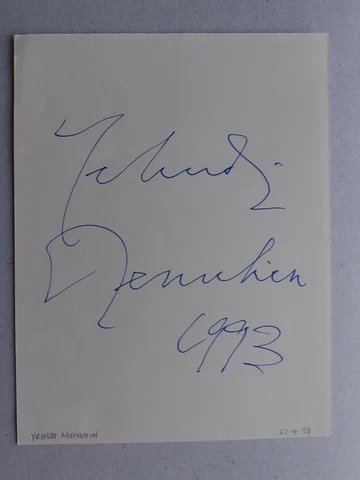 Yehudi
Menuhin
1993
YEHUDI MENUHIN
27.4.93